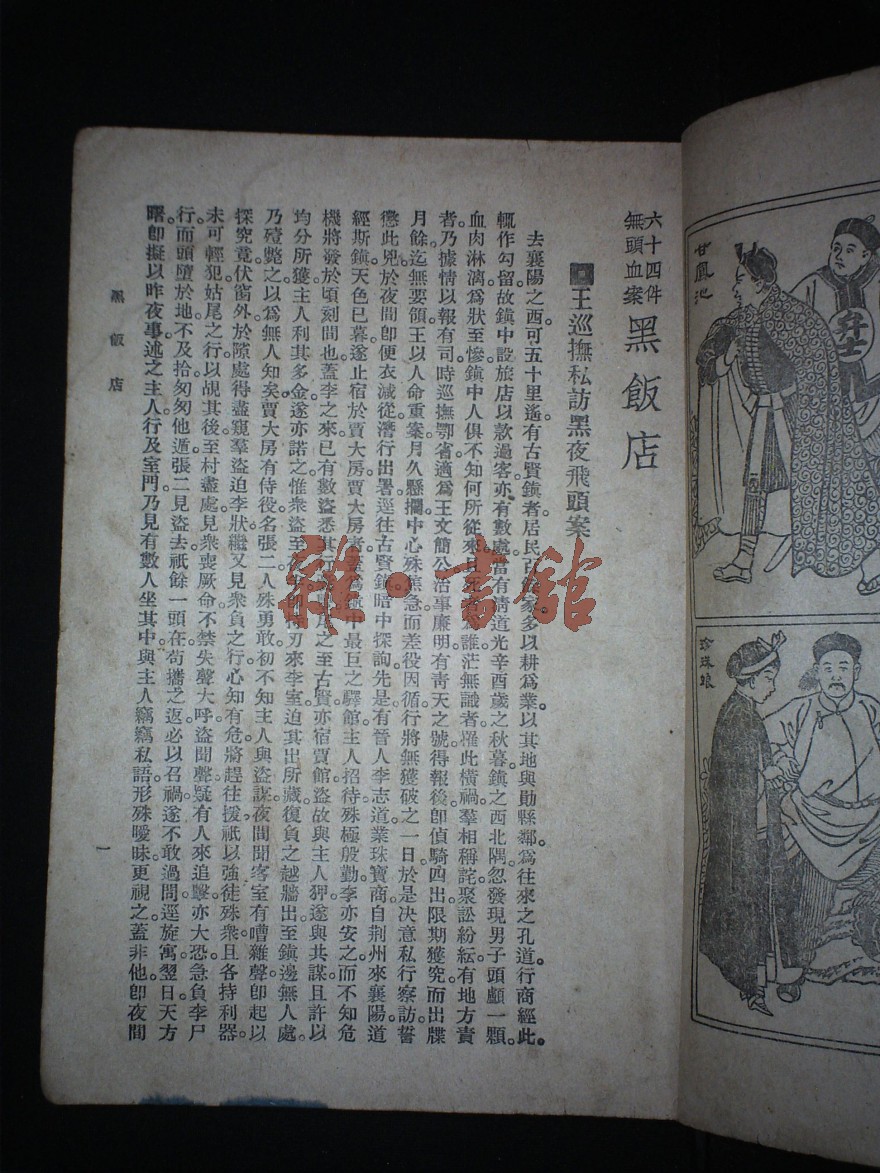 六十四件
無頭血案
黑飯店
王巡撫私訪黑夜飛頭案
去襄陽之西可五十里遙有古賢鎮者居民百餘家多以耕爲業以其地與鄖縣鄰爲往來之孔道行商經此。
輒作勾留故鎮中設旅店以款過客亦有數處當有淸道光辛酉歲之秋暮鎮之西北隅忽發現男子頭顱一顆。
血肉淋漓爲狀至慘鎮中人俱不知何所從來且死者爲誰茫無識者罹此橫禍羣相稱詫聚訟紛紜有地方責
者乃據情以報有司時巡撫鄂省適爲王文簡公治事廉明有靑天之號得報後卽偵騎四出限期獲究而出牒
月餘迄無要領王以人命重案月久懸擱中心殊焦急而差役因循行將無獲破之一日於是決意私行察訪誓
懲此兇於夜間卽便衣減從潛行出署逕往古賢鎮暗中探詢先是有晉人李志道業珠寶商自荆州來襄陽道
經斯鎮天色已暮遂止宿於賈大房賈大房者蓋爲鎮中最巨之驛館主人招待殊極般勤李亦安之而不知危
機將發於頃刻間也蓋李之來已有數盜悉其 尾之至古賢亦宿賈館盜故與主人狎遂與其謀且許以
均分所獲主人利其多金遂亦諾之惟衆盜至夜 卽持刃來李室迫其出所藏復負之越牆出至鎮邊無人處。
乃殪斃之以爲無人知矣賈大房有侍役名張二人殊勇敢初不知主人與盜謀夜間聞客室有嘈雜聲卽起以
探究竟伏窗外於隙處得盡窺羣盜迫李狀繼又見衆負之行心知有危將趕往援祇以強徒殊衆且各持利器。
未可輕犯姑尾之行以覘其後至村盡處見衆喪厥命不禁失聲大呼盜聞聲疑有人來追擊亦大恐急負李尸
行而頭墮於地不及拾匆匆他遁張二見盜去祇餘一頭在苟攜之返必以召禍遂不敢過問逕旋寓翌日天方
曙卽擬以昨夜事述之主人行及室門乃見有數人坐其中與主人竊竊私語形殊曖昧更視之蓋非他卽夜間
黑飯店
一
甘鳳池
弁士
珍珠娘
雜·書館